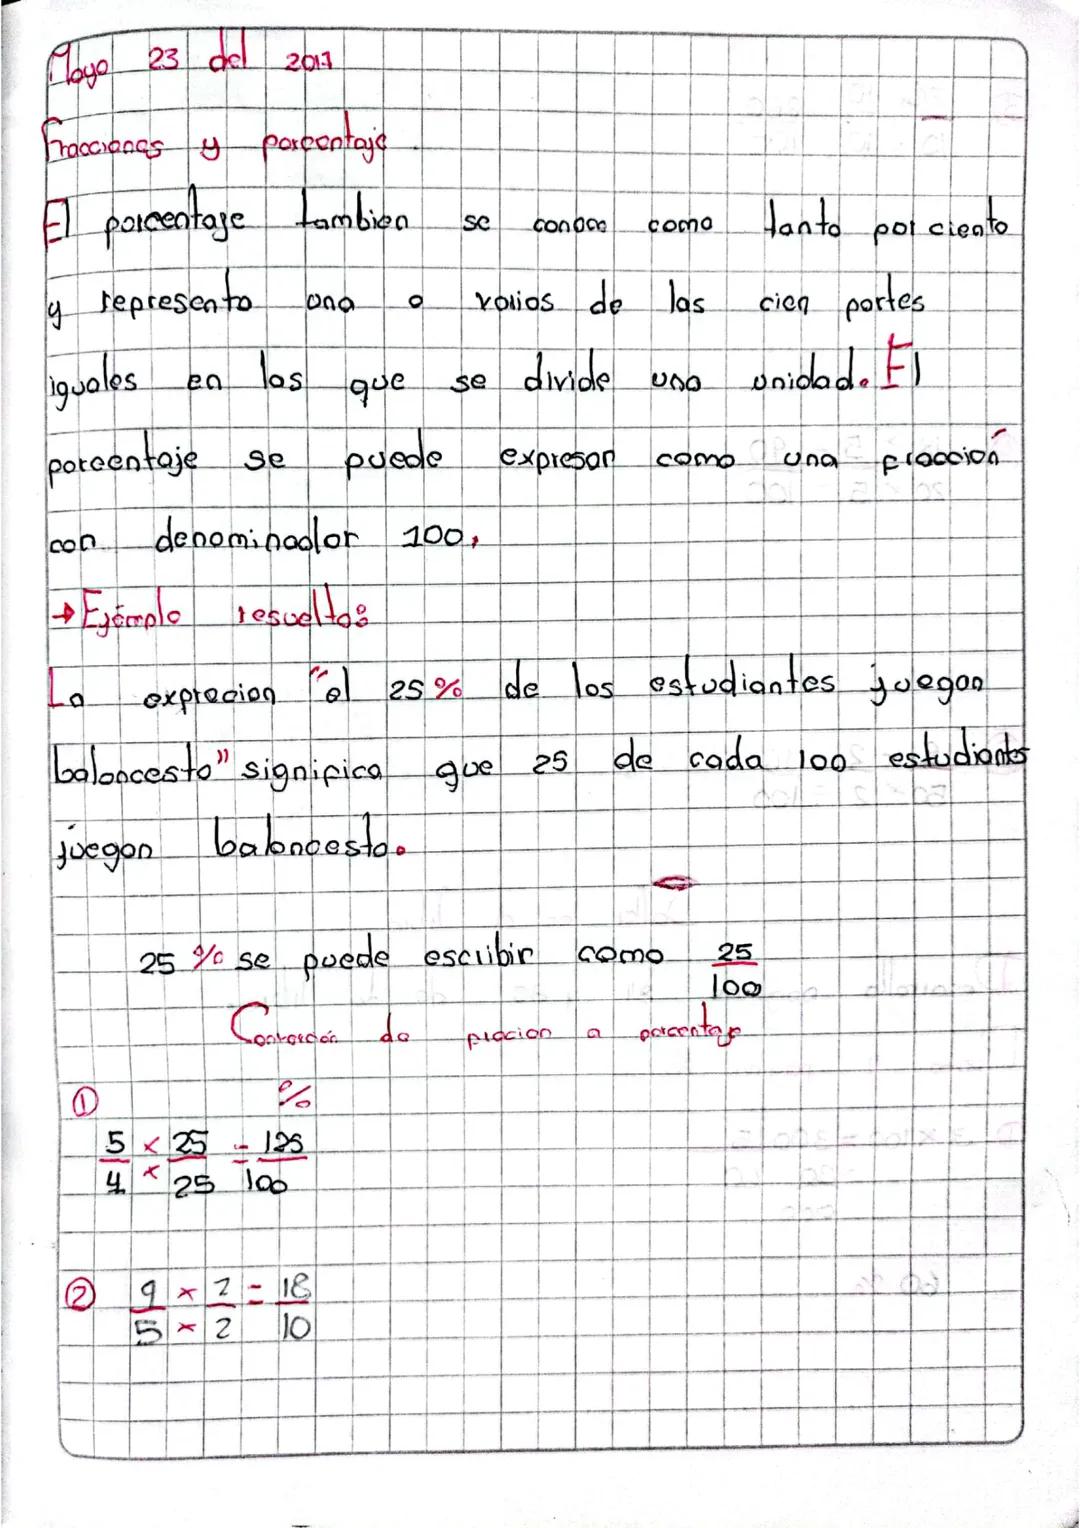 Mayo 23 del 2017
Fracciones y porcentaje
El porcentaje tambien se conoce como tanto por ciento
y representa una o varios de las cien partes
iguales en las que se divide una unidad. El
porcentaje se puede expresar como una fracción
con denominador 100.
→ Ejemplo resueltos
La exprecion "el 25% de los estudiantes juegan
baloncesto" significa que 25 de cada 100 estudiantes
juegan baloncesto.
25 % se puede escribir como 25/100
Conversión de fracion a porcentaje
① %
5/4 × 25/25 = 125/100
② 9/5 × 2/2 = 18/10